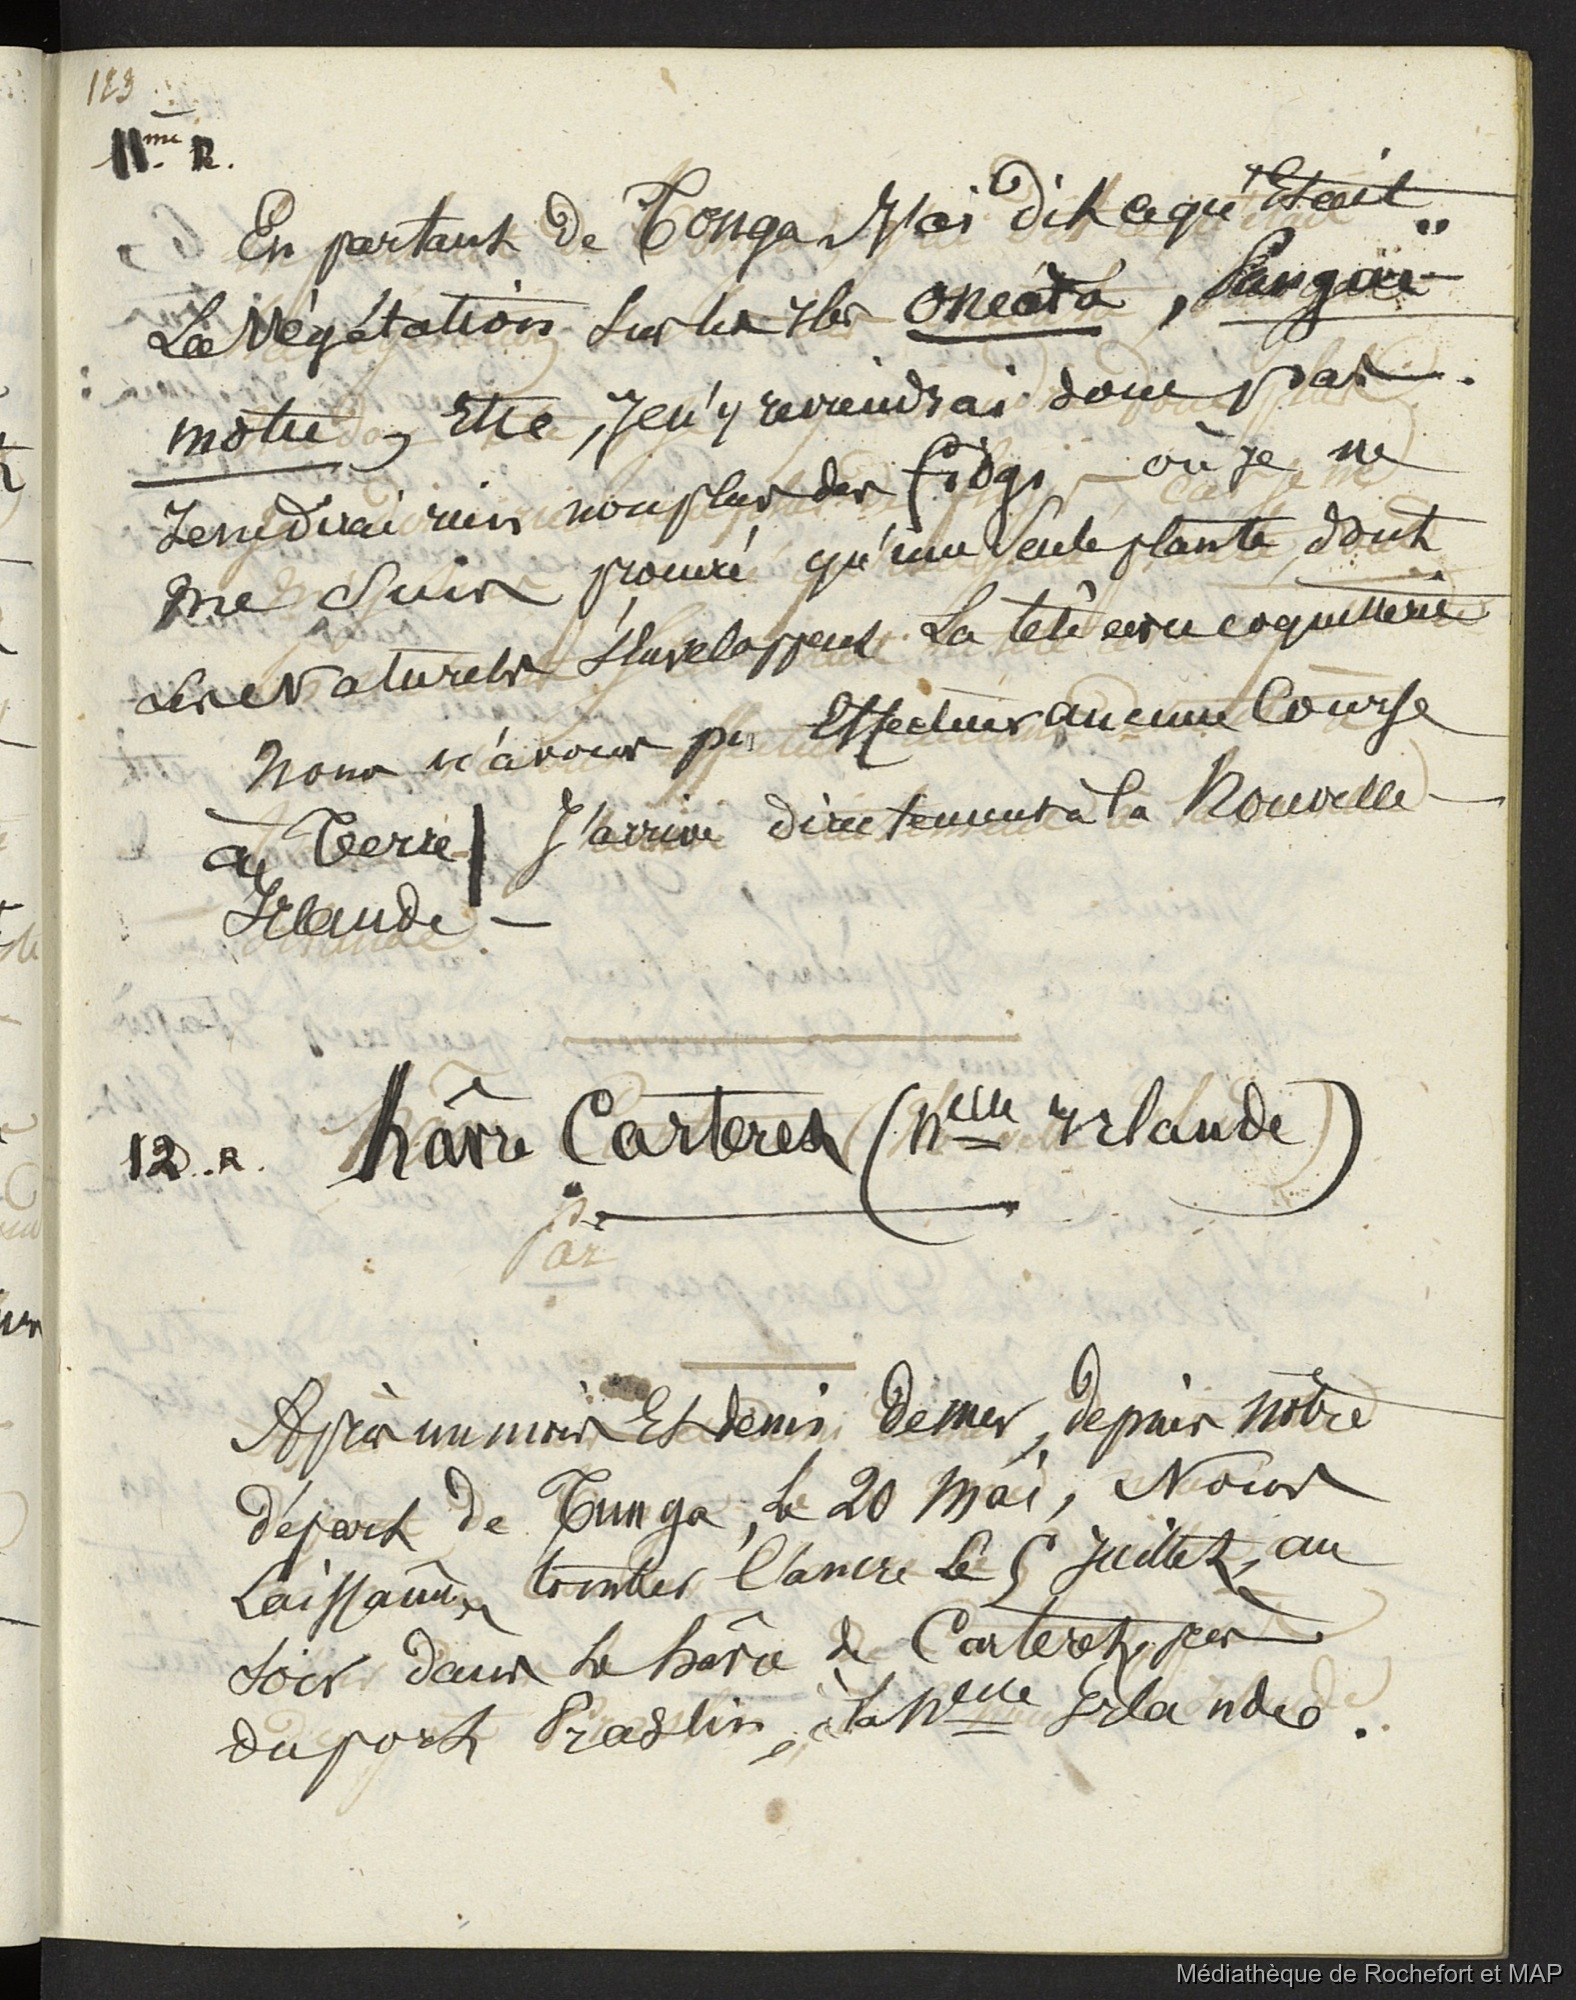 123
11.me R.
En partant de Tonga, J'ai dit ce qu'Etait
La végétation Sur les Isles Onéata, Pangaï
motu, Etc, Je n'y reviendrai donc pas.
Je ne dirai rien non plus des fidgi où je ne
me Suis procuré qu'une Seule plante, dont
Les Naturels S'envelappent La tête
Nous n'avons pu Effectuer aucune Course
à Terre J'arrive directement à la Nouvelle
Irlande —
12. R. hâvre Carteret (Nelle Irlande)
par
Après un mois Et demi de mer, depuis nôtre
départ de Tunga, le 20 mai, Nous
Laissâmes tomber l'ancre Le 5 Juillet, au
Soir dans le hâvre de Carteret, près
du port Praslin, à la Nelle Irlande.
Médiathèque de Rochefort et MAP